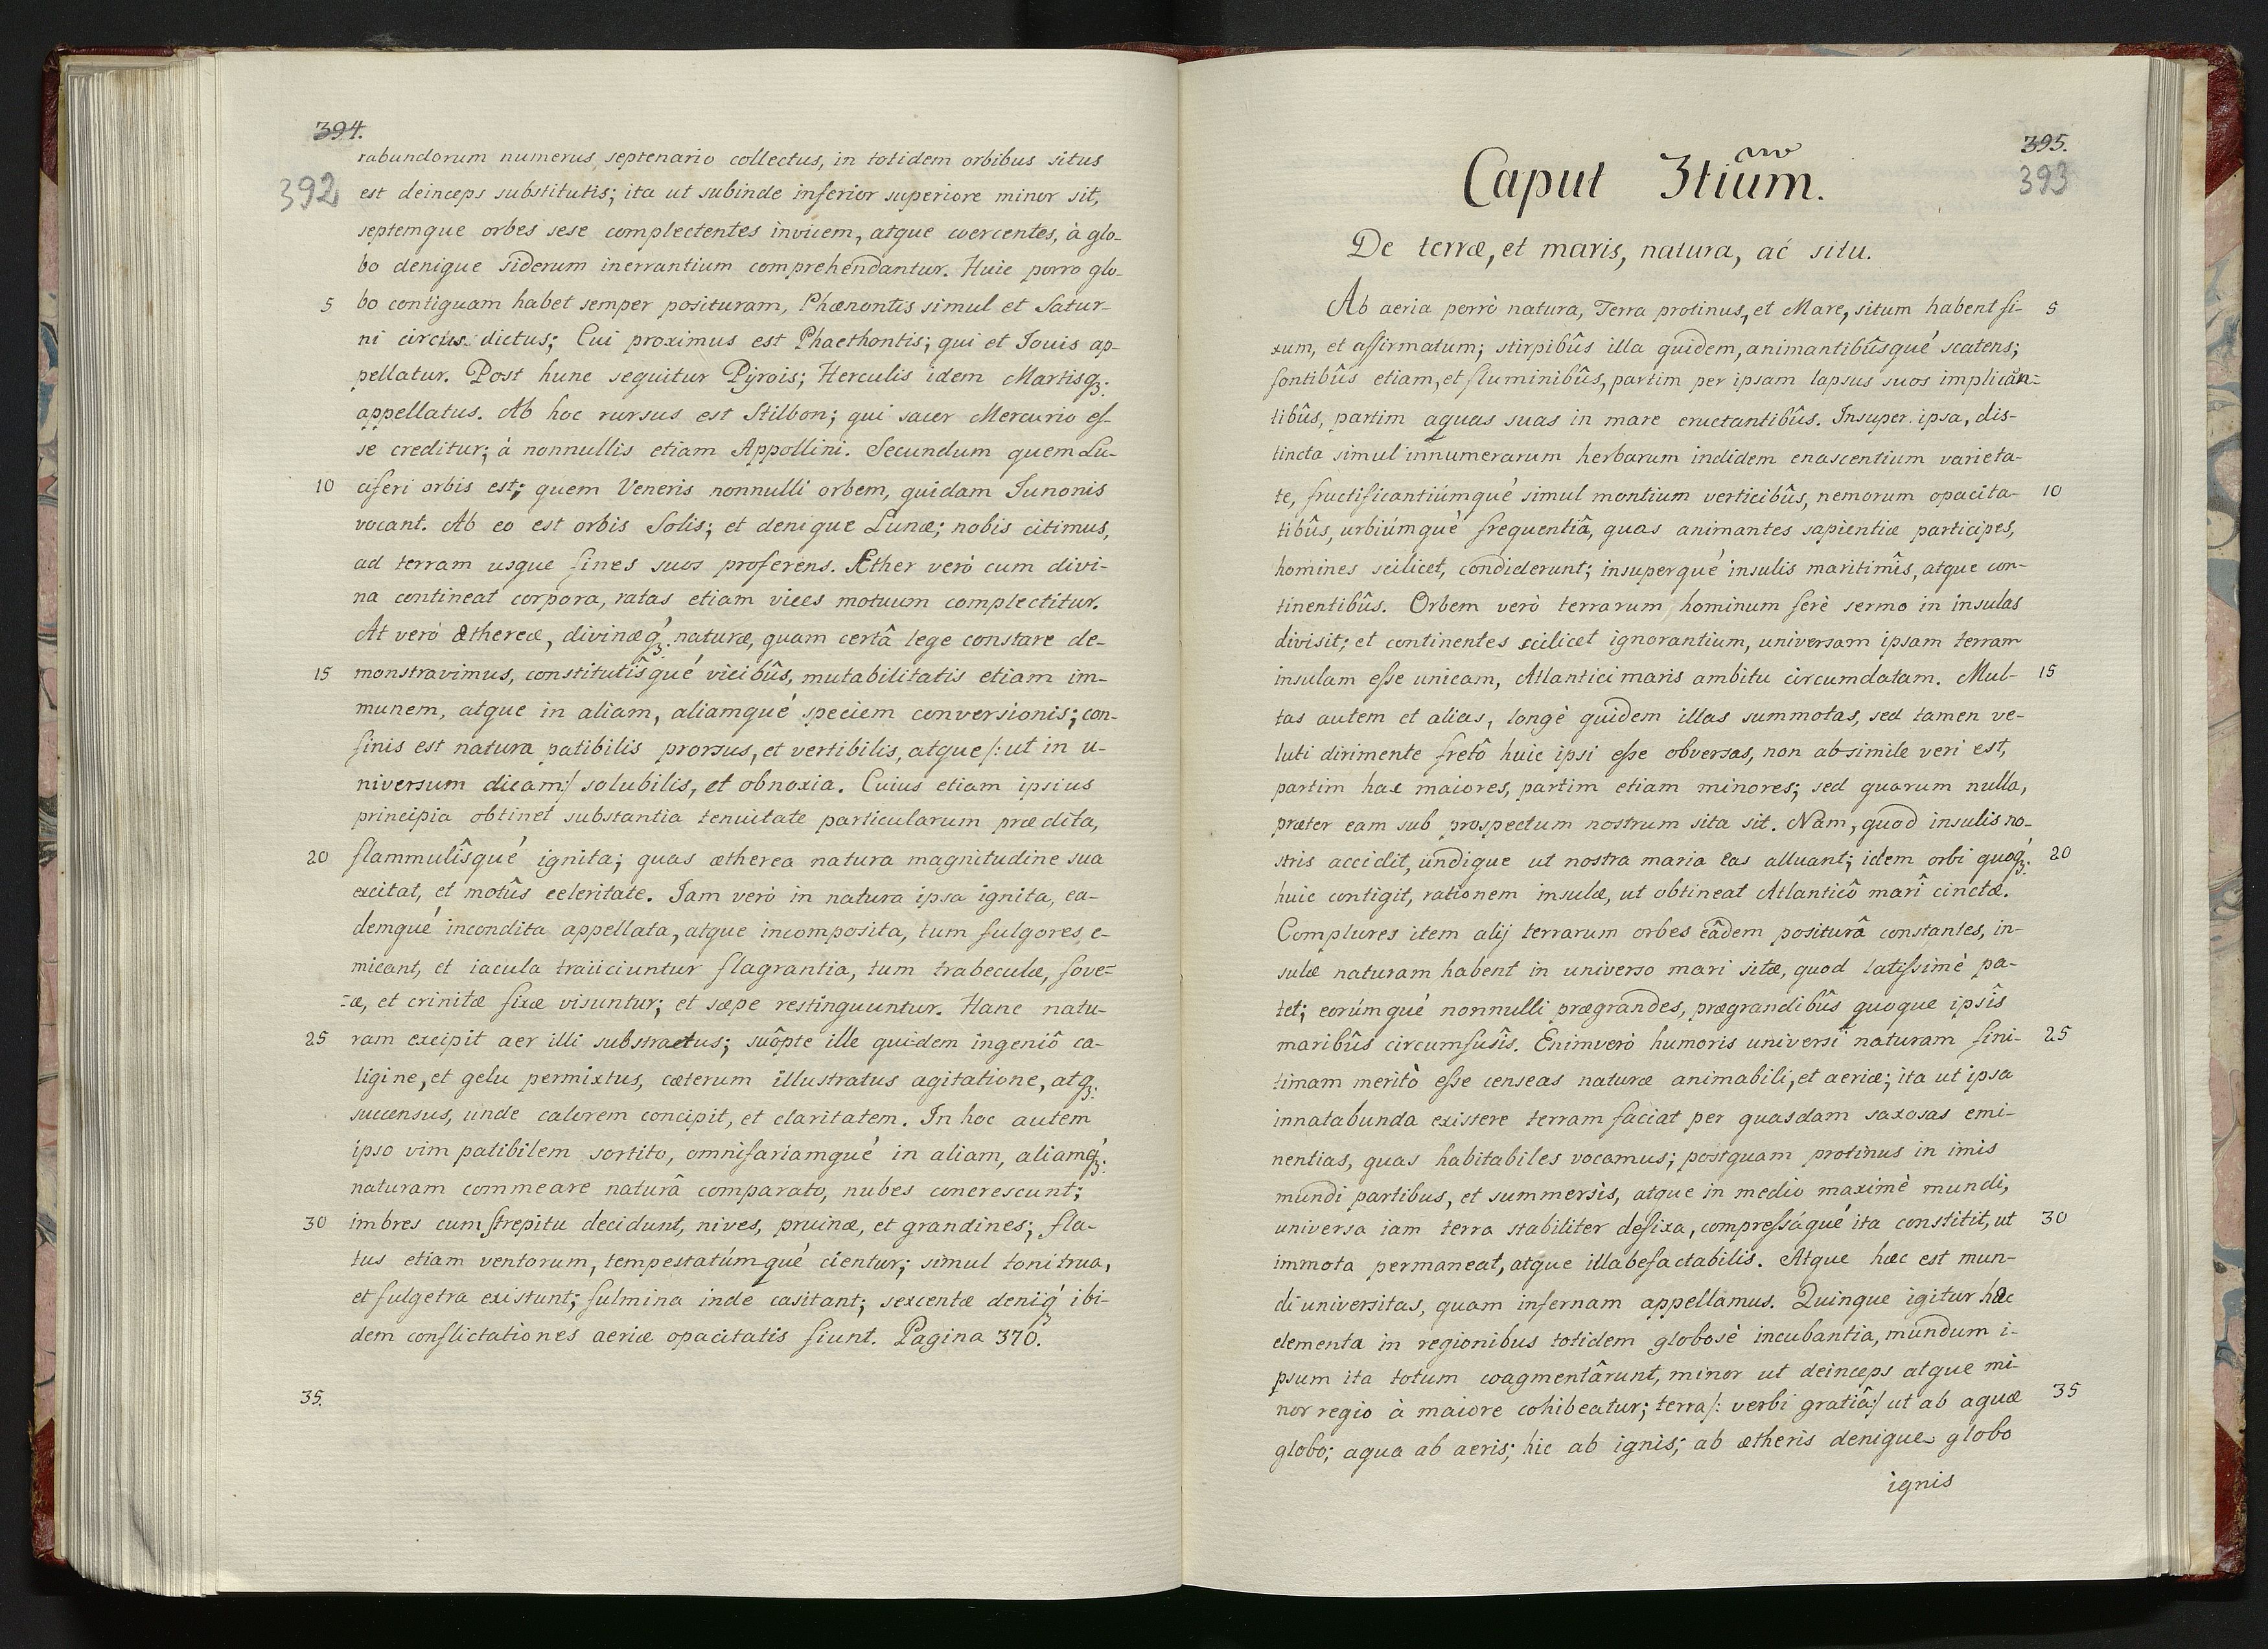 394.
392
rabundorum numerus, septenario collectus, in totidem orbibus situs
est deinceps substitutis; ita ut subinde inferior superiore minor sit,
septemque orbes sese complectentes invicem, atque coercentes, à glo-
bo denique siderum inerrantium comprehendantur. Huic porro glo-
5 bo contiguam habet semper posituram, Phænontis simul et Satur-
ni circus dictus; Cui proximus est Phaethontis; qui et Iouis ap-
pellatur. Post hunc sequitur Pÿrois; Herculis idem Martisqꝫ.
appellatus. Ab hoc rursus est Stilbon; qui sacer Mercurio eſ-
se creditur; à nonnullis etiam Appollini. Secundum quem Lu-
10 ciferi orbis est; quem Veneris nonnulli orbem, quidam Iunonis
vocant. Ab eo est orbis Solis; et denique Lunæ; nobis citimus,
ad terram usque fines suos proferens. Æther verò cum divi-
na contineat corpora, ratas etiam vices motuum complectitur.
At verò æthereæ, divinæq́ꝫ. naturæ, quam certâ lege constare de-
15 monstravimus, constitutîsqué vicibûs, mutabilitatis etiam im-
munem, atque in aliam, aliamqué speciem conversionis; con-
finis est natura patibilis prorsus, et vertibilis, atque /: ut in u-
niversum dicam:/ solubilis, et obnoxia. Cuius etiam ipsius
principia obtinet substantia tenuitate particularum prædita,
20 flammulîsqué ignita; quas ætherea natura magnitudine sua
excitat, et motûs celeritate. Iam verò in natura ipsa ignita, ea-
demqué incondita appellata, atque incomposita, tum fulgores, e-
micant, et iacula traiiciuntur flagrantia, tum trabeculæ, fove-
-æ, et crinitæ fixæ visuntur; et sæpe restinguuntur. Hanc natu-
25 ram excipit aer illi substractus; suôpte ille quidem ingeniô ca-
ligine, et gelu permixtus, cæterum illustratus agitatione, atqꝫ.
succensus, unde calorem concipit, et claritatem. In hoc autem
ipso vim patibilem sortito, omnifariamqué in aliam, aliamq́ꝫ.
naturam commeare naturâ comparato, nubes concrescunt;
30 imbres cum strepitu decidunt, nives, pruinæ, et grandines; fla-
tus etiam ventorum, tempestatúmqué cientur; simul tonitrua,
et fulgetra existunt; fulmina inde casitant; sexcentæ deniq́ꝫ ibi-
dem conflictationes aeriæ opacitatis fiunt. Pagina 370.
35.
395.
393
Caput 3tium.
De terræ, et maris, natura, ac situ.
Ab aeria porrò natura, Terra protinus, et Mare, situm habent fi- 5
xum, et aſfirmatum; stirpibûs illa quidem, animantibûsqué scatens;
fontibûs etiam, et fluminibûs, partim per ipsam lapsus suos implican-
tibûs, partim aquas suas in mare eructantibûs. Insuper ipsa, dis-
tincta simul innumerarum herbarum indidem enascentium varieta-
te, fructificantiúmqué simul montium verticibûs, nemorum opacita- 10
tibûs, urbiúmquè frequentiâ, quas animantes sapientiæ participes,
homines scilicet, condiderunt; insuperqué insulis maritimîs, atque con-
tinentibûs. Orbem verò terrarum hominum ferè sermo in insulas
divisit; et continentes scilicet ignorantium, universam ipsam terram
insulam eſse unicam, Atlantici maris ambitu circumdatam. Mul- 15
tas autem et alias, longè quidem illas summotas, sed tamen ve-
luti dirimente fretô huic ipsi eſse obversas, non absimile veri est,
partim hac maiores, partim etiam minores; sed quarum nulla,
præter eam sub prospectum nostrum sita sit. Nam, quod insulis no-
stris accidit, undique ut nostra maria eas alluant; idem orbi quoq́ꝫ. 20
huic contigit, rationem insulæ, ut obtineat Atlanticô marî cinctæ.
Complures item alij terrarum orbes eâdem positurâ constantes, in-
sulæ naturam habent in universo mari sitæ, quod latiſsimè pa-
tet; eorúmqué nonnulli prægrandes, prægrandibûs quoque ipsîs
maribûs circumfusîs. Enimverò humoris universi naturam fini- 25
timam meritò eſse censeas naturæ animabili, et aeriæ; ita ut ipsa
innatabunda existere terram faciat per quasdam saxosas emi-
nentias, quas habitabiles vocamus; postquam protinus in imis
mundi partibus, et summersis, atque in medio maximè mundi,
universa iam terra stabiliter defixa, compreſsáqué ita constitit, ut 30
immota permaneat, atque illabefactabilis. Atque hæc est mun-
di universitas, quam infernam appellamus. Quinque igitur hæc
elementa in regionibus totidem globosè incubantia, mundum i-
psum ita totum coagmentârunt, minor ut deinceps atque mi-
nor regio à maiore cohibeatur; terra /: verbi gratiâ:/ ut ab aquæ 35
globo; aqua ab aeris; hic ab ignis; ab ætheris denique globo
ignis